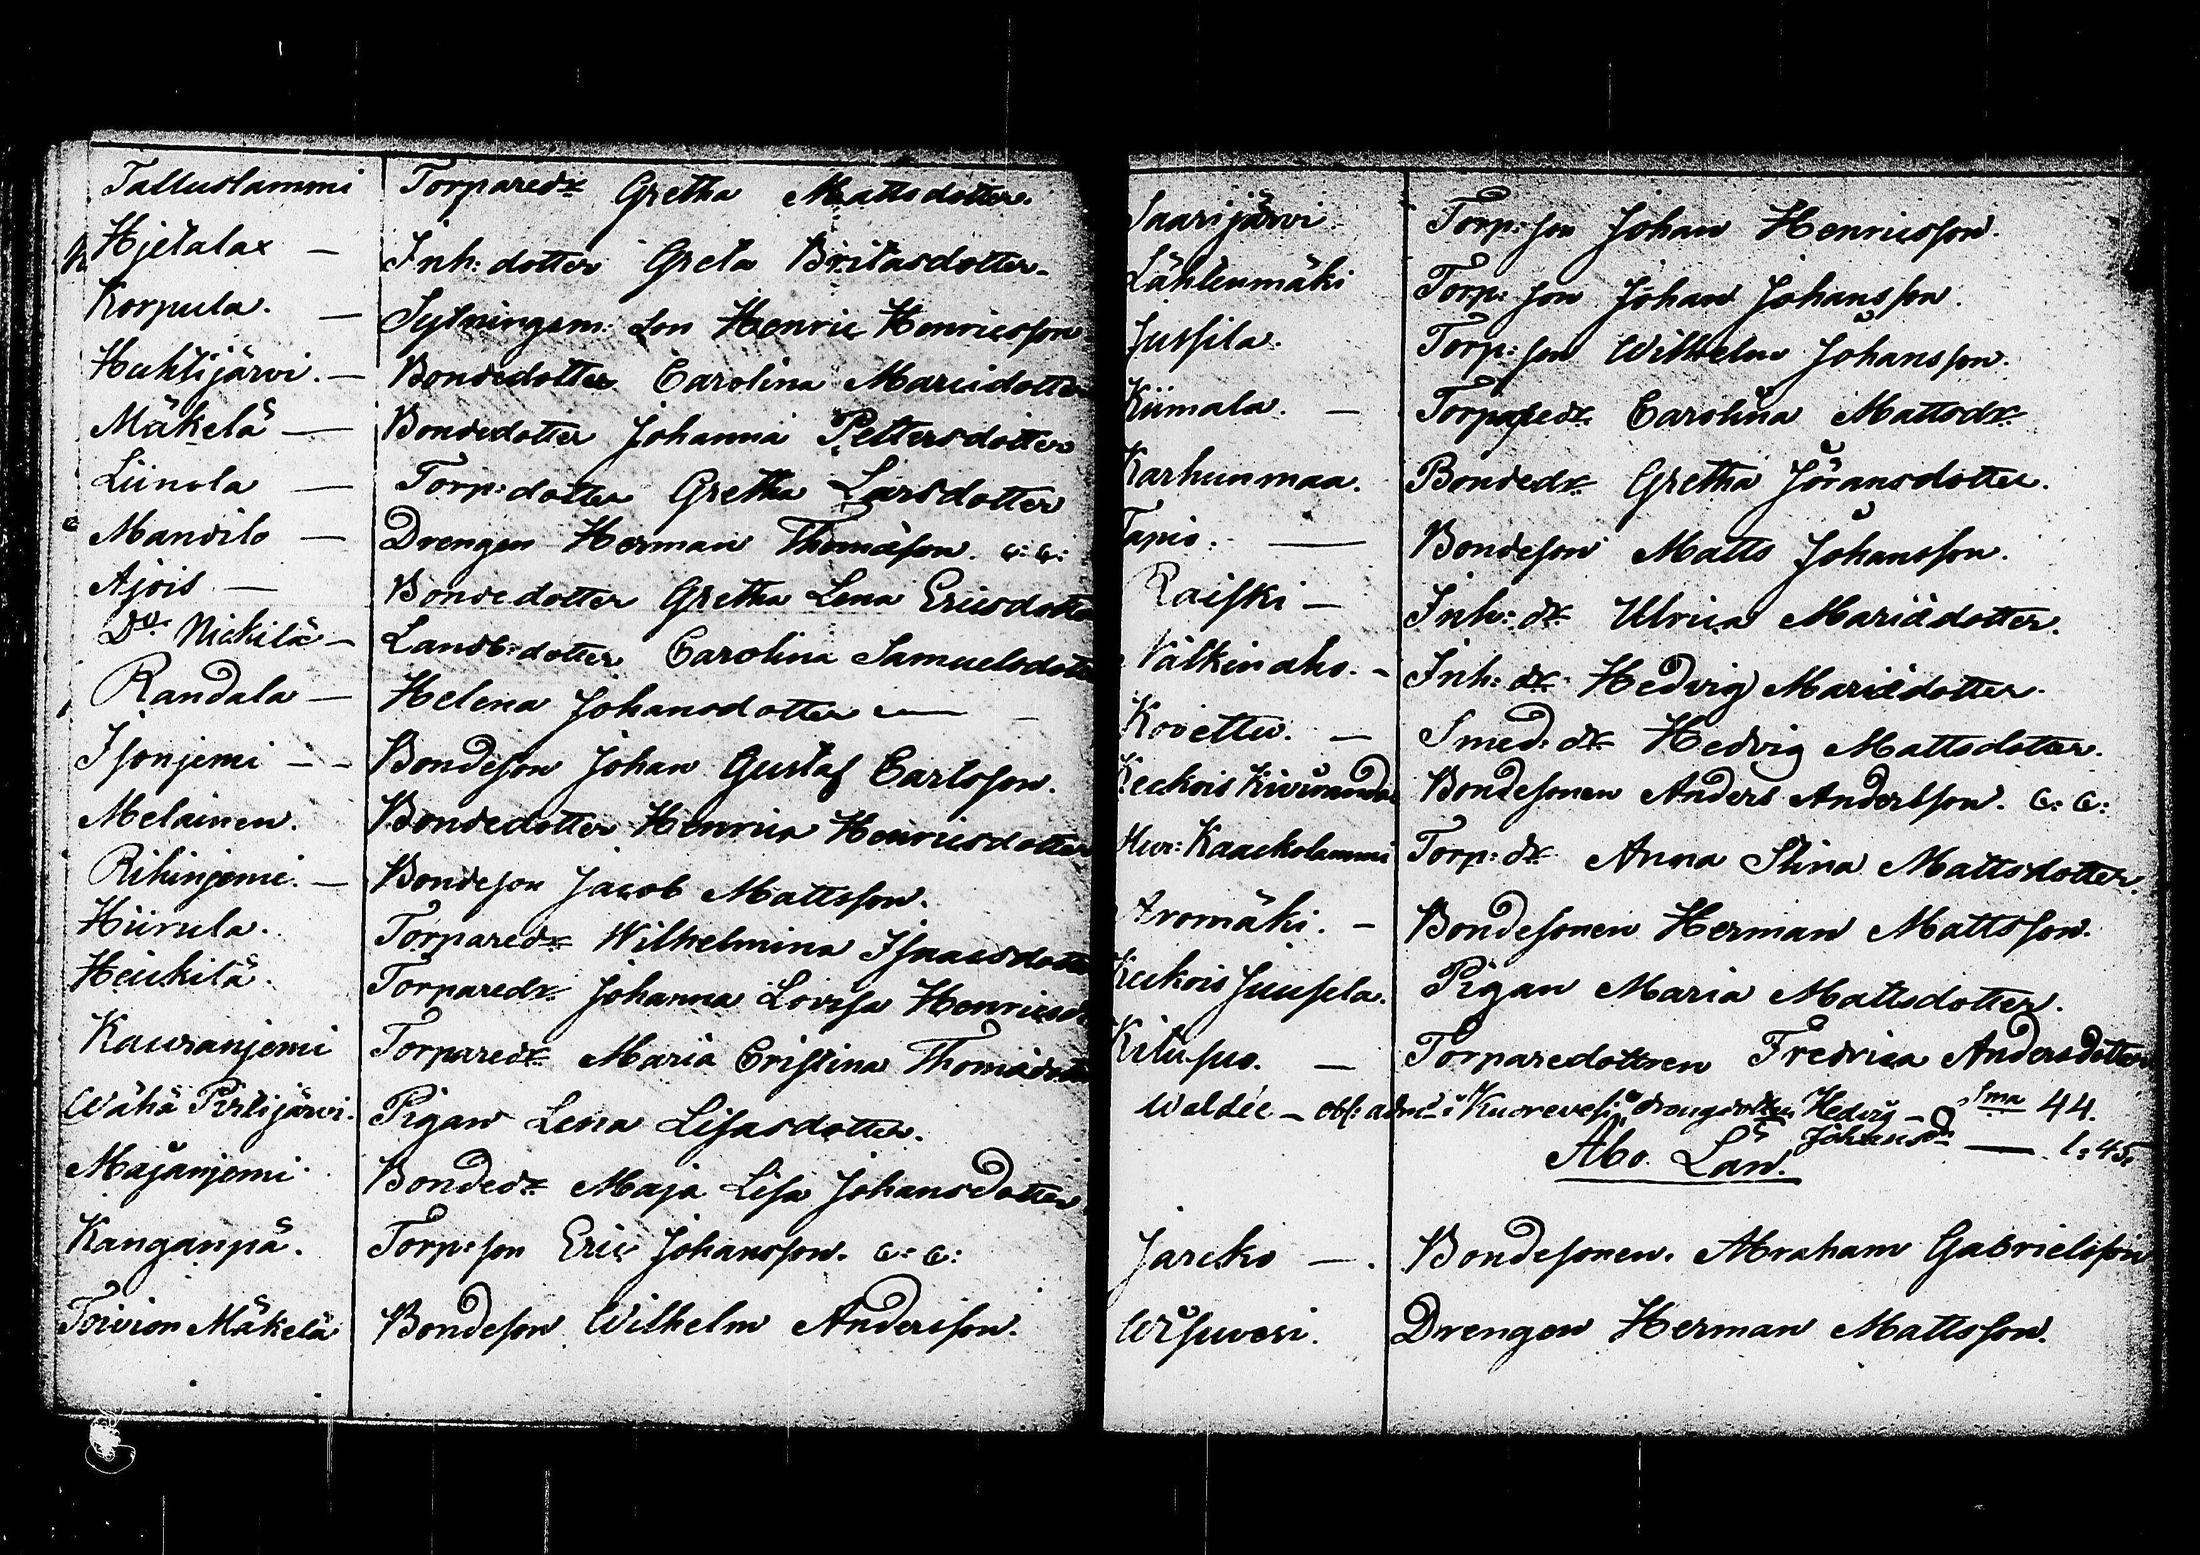 Talluslammi Torparedr Gretha Mattsdotter.
Hjetalax — Inh: dotter Greta Britasdotter.
Korpula. — Sytningsm: son Henric Henricsson
Huhtijärvi. — Bondedotter Carolina Mariidotter
Mäkelä — Bondedotter Johanna Pettersdotter
Liinola — Torp: dotter Gretha Larsdotter
Mandilo — Drengen Herman Thomasson. c: c:
Ajois — Bondedotter Gretha Lena Ericsdotter
Do Nickilä — Landb: dotter Carolina Samuelsdotter
Randala — Helena Johansdotter —
Isonjemi — Bondeson Johan Gustaf Carlsson.
Melainen. Bondedotter Henrica Henricsdotter
Rihinjemi. — Bondeson Jacob Mattsson.
Hiirula. Torparedr Wilhelmina Isaacsdotter
Heickilä. Torparedr Johanna Lovisa Henricsdr
Kauranjemi Torparedr Maria Cristina Thomasdotter
Wähä Pirtijärvi. Pigan Lena Lisasdotter.
Majanjemi Bondedr Maja Lisa Johansdotter
Kanganpä. Torp: son Eric Johansson. c: c:
Toivion Mäkelä Bondeson Wilhelm Andersson.
Saarijärvi Torp: son Johan Henricsson.
Lähtenmäki Torp: son Johan Johansson.
Jussila. Torp: son Wilhelm Johansson.
Kiimala. — Torparedr Carolina Mattsdr
Karhunmaa. Bondedr Gretha Jöransdotter.
Tapio. — Bondeson Matts Johansson.
Raiski — Inh: dr Ulrica Mariädotter.
Välkinaho. — Inh: dr Hedvig Mariädotter.
Kovettu. — Smed: dr Hedvig Mattsdotter.
Keckois Bondesonen Anders Andersson. c: c:
Kaackolammi Torp: dr Anna Stina Mattsdotter.
Aromäki. — Bondesonen Herman Mattsson.
Keckois Juusela. Pigan Maria Mattsdotter.
Kitusuo. — Torparedottren Fredrica Andersdotter
Waldee — obs: i Kuorevesi Hedvig — 44.
Johansdr — 1:45.
Åbo Län.
Jarcko — Bondesonen. Abraham Gabrielsson
Wisuvesi. Drengen Herman Mattsson.